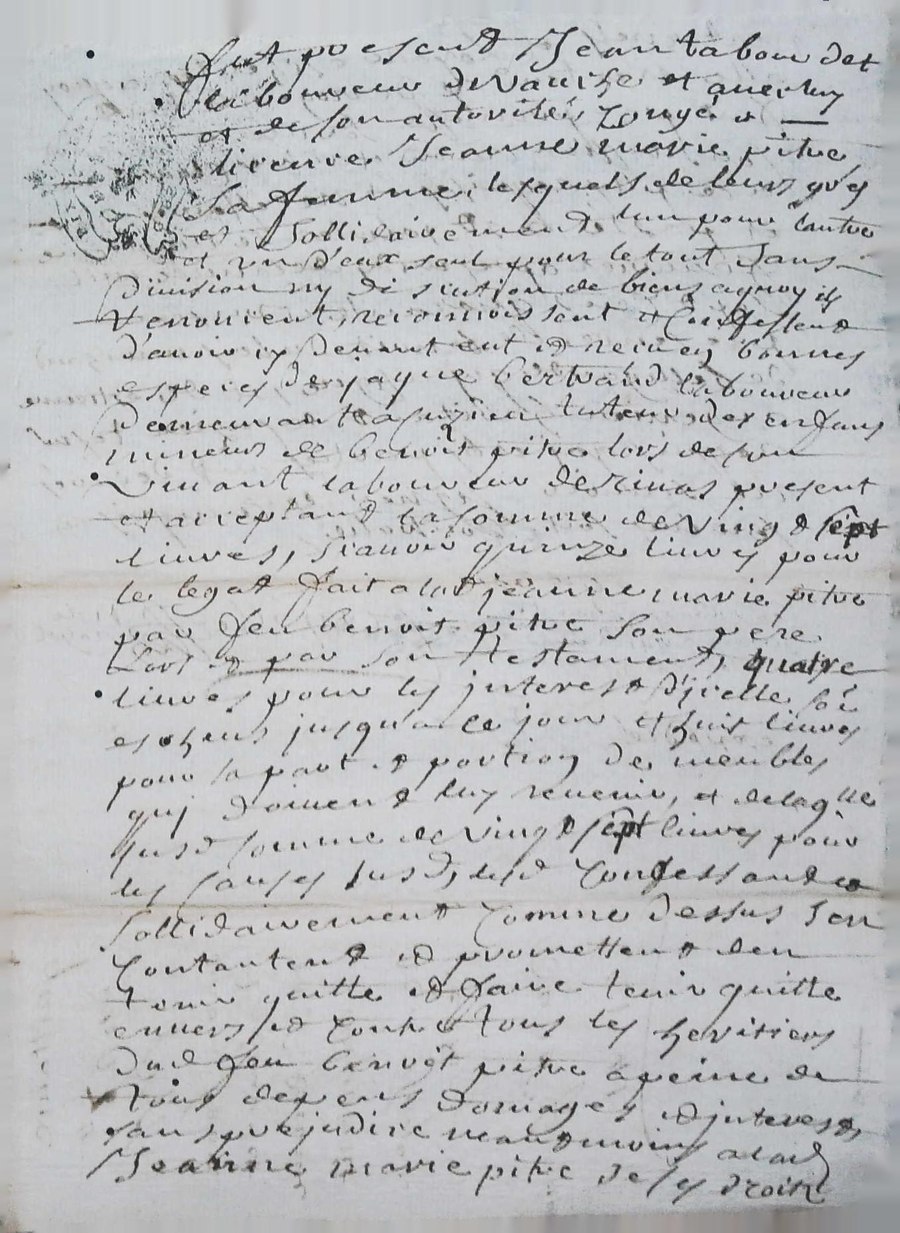 fut present Jean tabou det
laboureur de et avec luy
et de son autorité, congé et
licence Jeanne marie pitre
sa femme, lesquels de leurs grés
et sollidairement lun pour lautre
et un d'eux seul pour le tout sans
division ny discution de biens aquoy ils
renoncent, reconnoissent et confessent
d'avoir cy devant eut et receu en bonnes
especes de jaque bertrand laboureur
demeurant a tuteur des enfans
mineurs de benoit pitre lors de son
vivant laboureur de present
et acceptant la somme de vingt sept
livres, scavoir quinze livres pour
le legat fait a lad jeanne marie pitre
par feu benoit pitre son pere
dans et par son testament, quatre
livres pour les interest d'icelle so
escheus jusqua ce jour et huit livres
pour sa part et portion de meubles
quj doivent luy revenir, et de laqlle
susd somme de vingt sept livres pour
les causes susd, lesd confessant et
sollidairement comme dessus sen
contantent et promettent den
tenir quitte et faire tenir quitte
envers et contre tous les heritiers
dud feu benoit pitre a peine de
tous depens domages et interests
sans prejudice neantmoins a lad
Jeanne marie pitre de ses droits